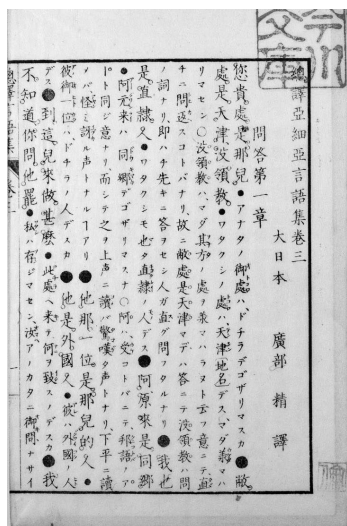 總譯亞細亞言語集卷三
大日本 廣部精譯
問答第一章
您貴處是那兒●アナタノ御處ハドチラデゴザリマスカ●敝
處是天津沒領教●ワタクシノ處ハ天津地名デス、マダ
リマセン○沒領教ハマダ其方ノ處ヲ承マハラヌト云フ意ニテ直
チニ問返スコトバナリ、故ニ敝處是天津マデハ答ニテ沒領教ハ問
ノ詞ナリ、即ハチ先キニ答ヲセシ人ガ直グ問フタルナリ●我也
是直隸人●ワタクシモ也タ直隸ノ人デス●阿原來是同鄉
●阿元來ハ同鄉デゴザリマスナ○阿ハ受コトバニテ、邦語ノア
ート同ジ意ナリ、而シテ之ヲ上声ニ讀バ驚嘆ノ声トナリ、下平ニ讀
メバ怪ミ訝ル声トナルヿアリ●他那一位是那兒的人●
彼御一位ハドチラノ人デスカ●他是外國人●彼ハ外國ノ人
デス●到這兒來做甚麼●此處ヘ来テ何ヲ致スノデスカ●我
不知道你問他罷●私ハ存ジマセン、汝アカタニ御問ナサイ
今川文庫